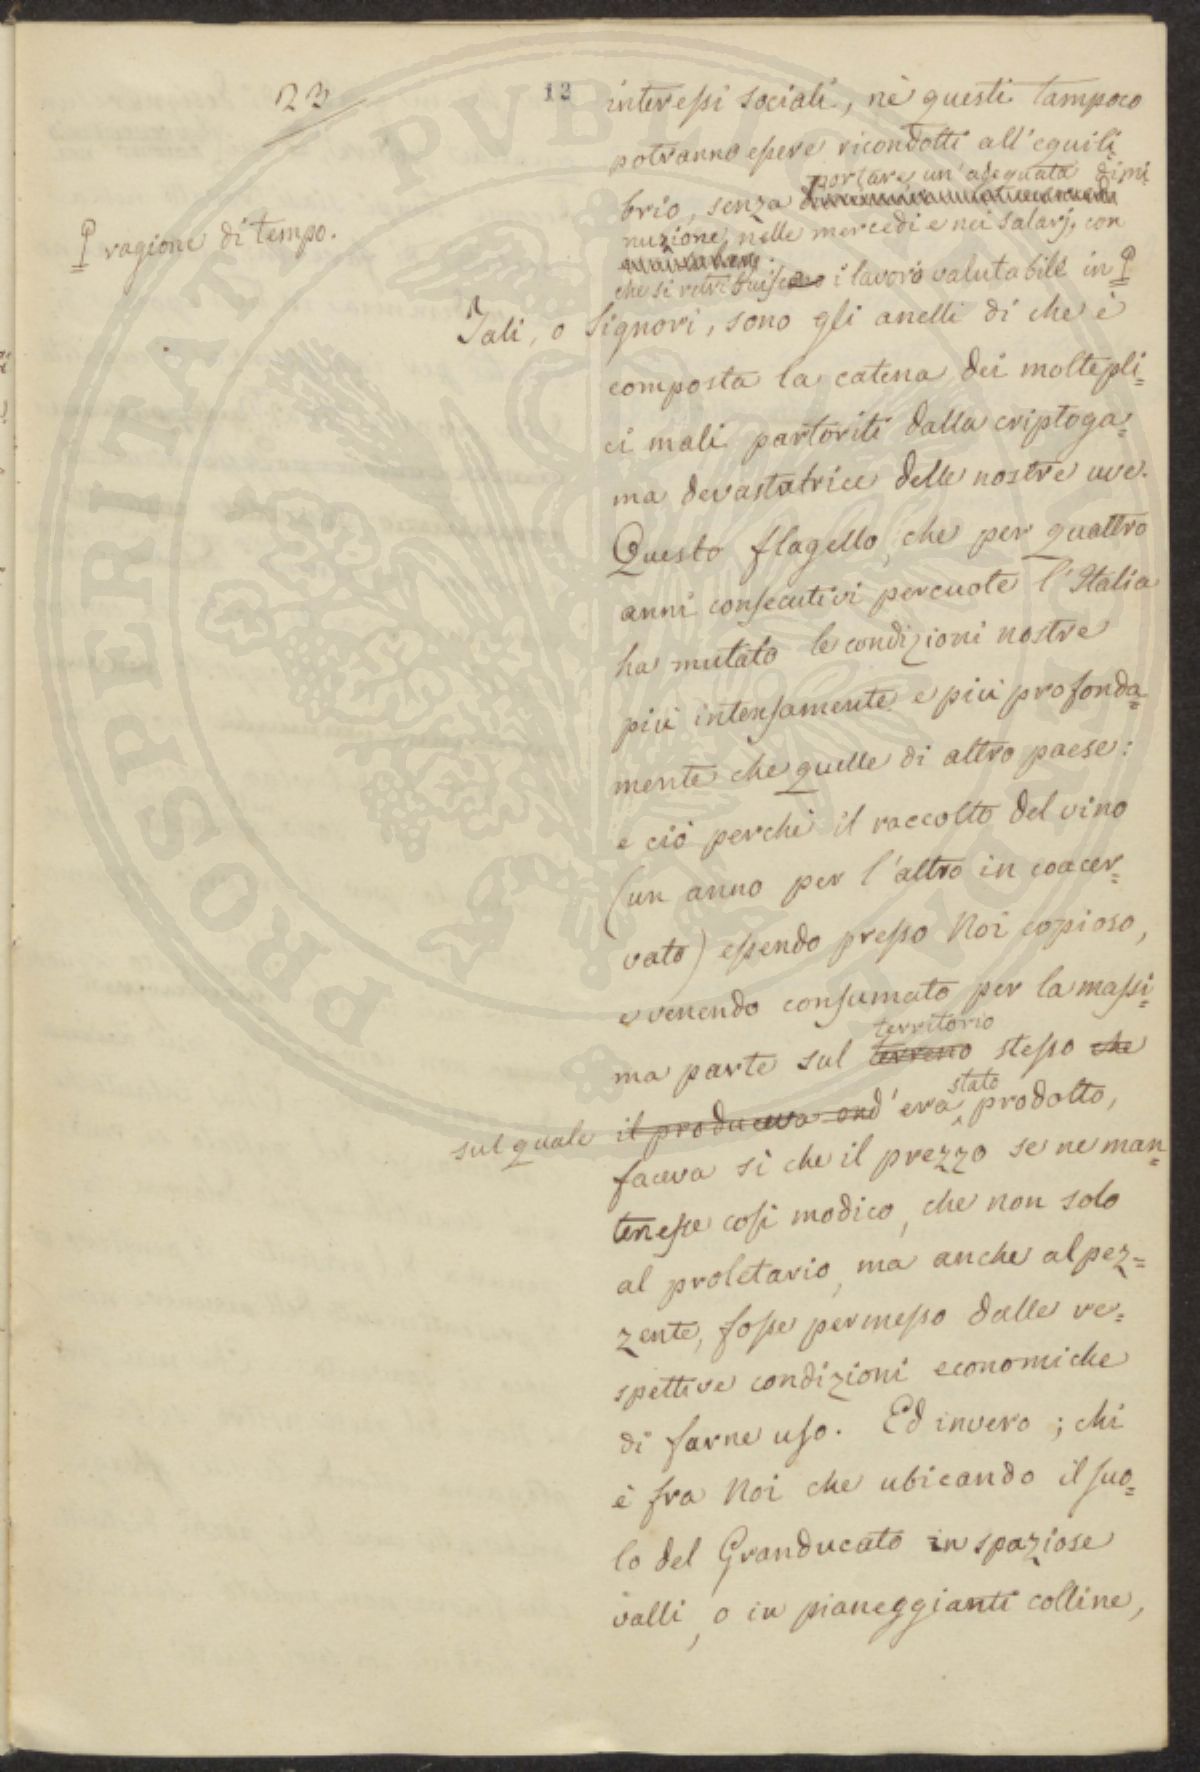 23
12
interessi sociali, nè questi tampoco
potranno essere ricondotti all'equili=
portare un'adeguata dimi=
brio, senza
nuzione, nelle mercedi e nei salarj, con
che si retribuisce i lavoro valutabile in
ragione di tempo.
Tali, o Signori, sono gli anelli di che è
composta la catena dei moltepli=
ci mali partoriti dalla criptoga=
ma devastatrice delle nostre uve.
Questo flagello, che per quattro
anni consecutivi percuote l'Italia
ha mutato le condizioni nostre
più intensamente e più profonda=
mente che quelle di altro paese:
e ciò perchè il raccolto del vino
(un anno per l'altro in coacer=
vato) essendo presso Noi copioso,
e venendo consumato per la massi=
territorio
ma parte sul terreno stesso che
stato
sul quale il produceva ond'era prodotto,
faceva sì che il prezzo se ne man=
tenesse così modico, che non solo
al proletario, ma anche al pez=
zente, fosse permesso dalle re=
spettive condizioni economiche
di farne uso. Ed invero; chi
è fra Noi che ubicando il suo=
lo del Granducato in spaziose
valli, o in pianeggianti colline,
PROSPERITATI PVBLICAE